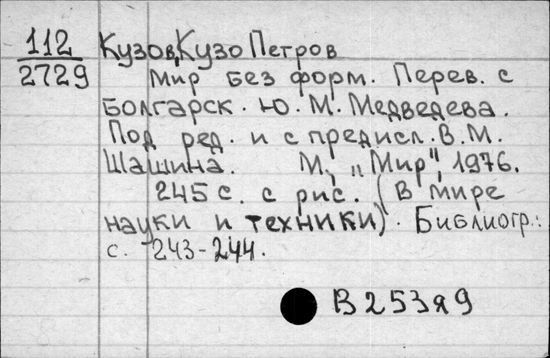 112
2729
Кузов, Кузо Петров
Мир без форм. Перев. с
Болгарск. Ю. М. Медведева.
Под ред. и с предисл. В. М.
Шашина. М., „Мир", 1976.
245 с. с рис. (В мире
науки и техники). Библиогр.:
с. 243-244.
В 253я9